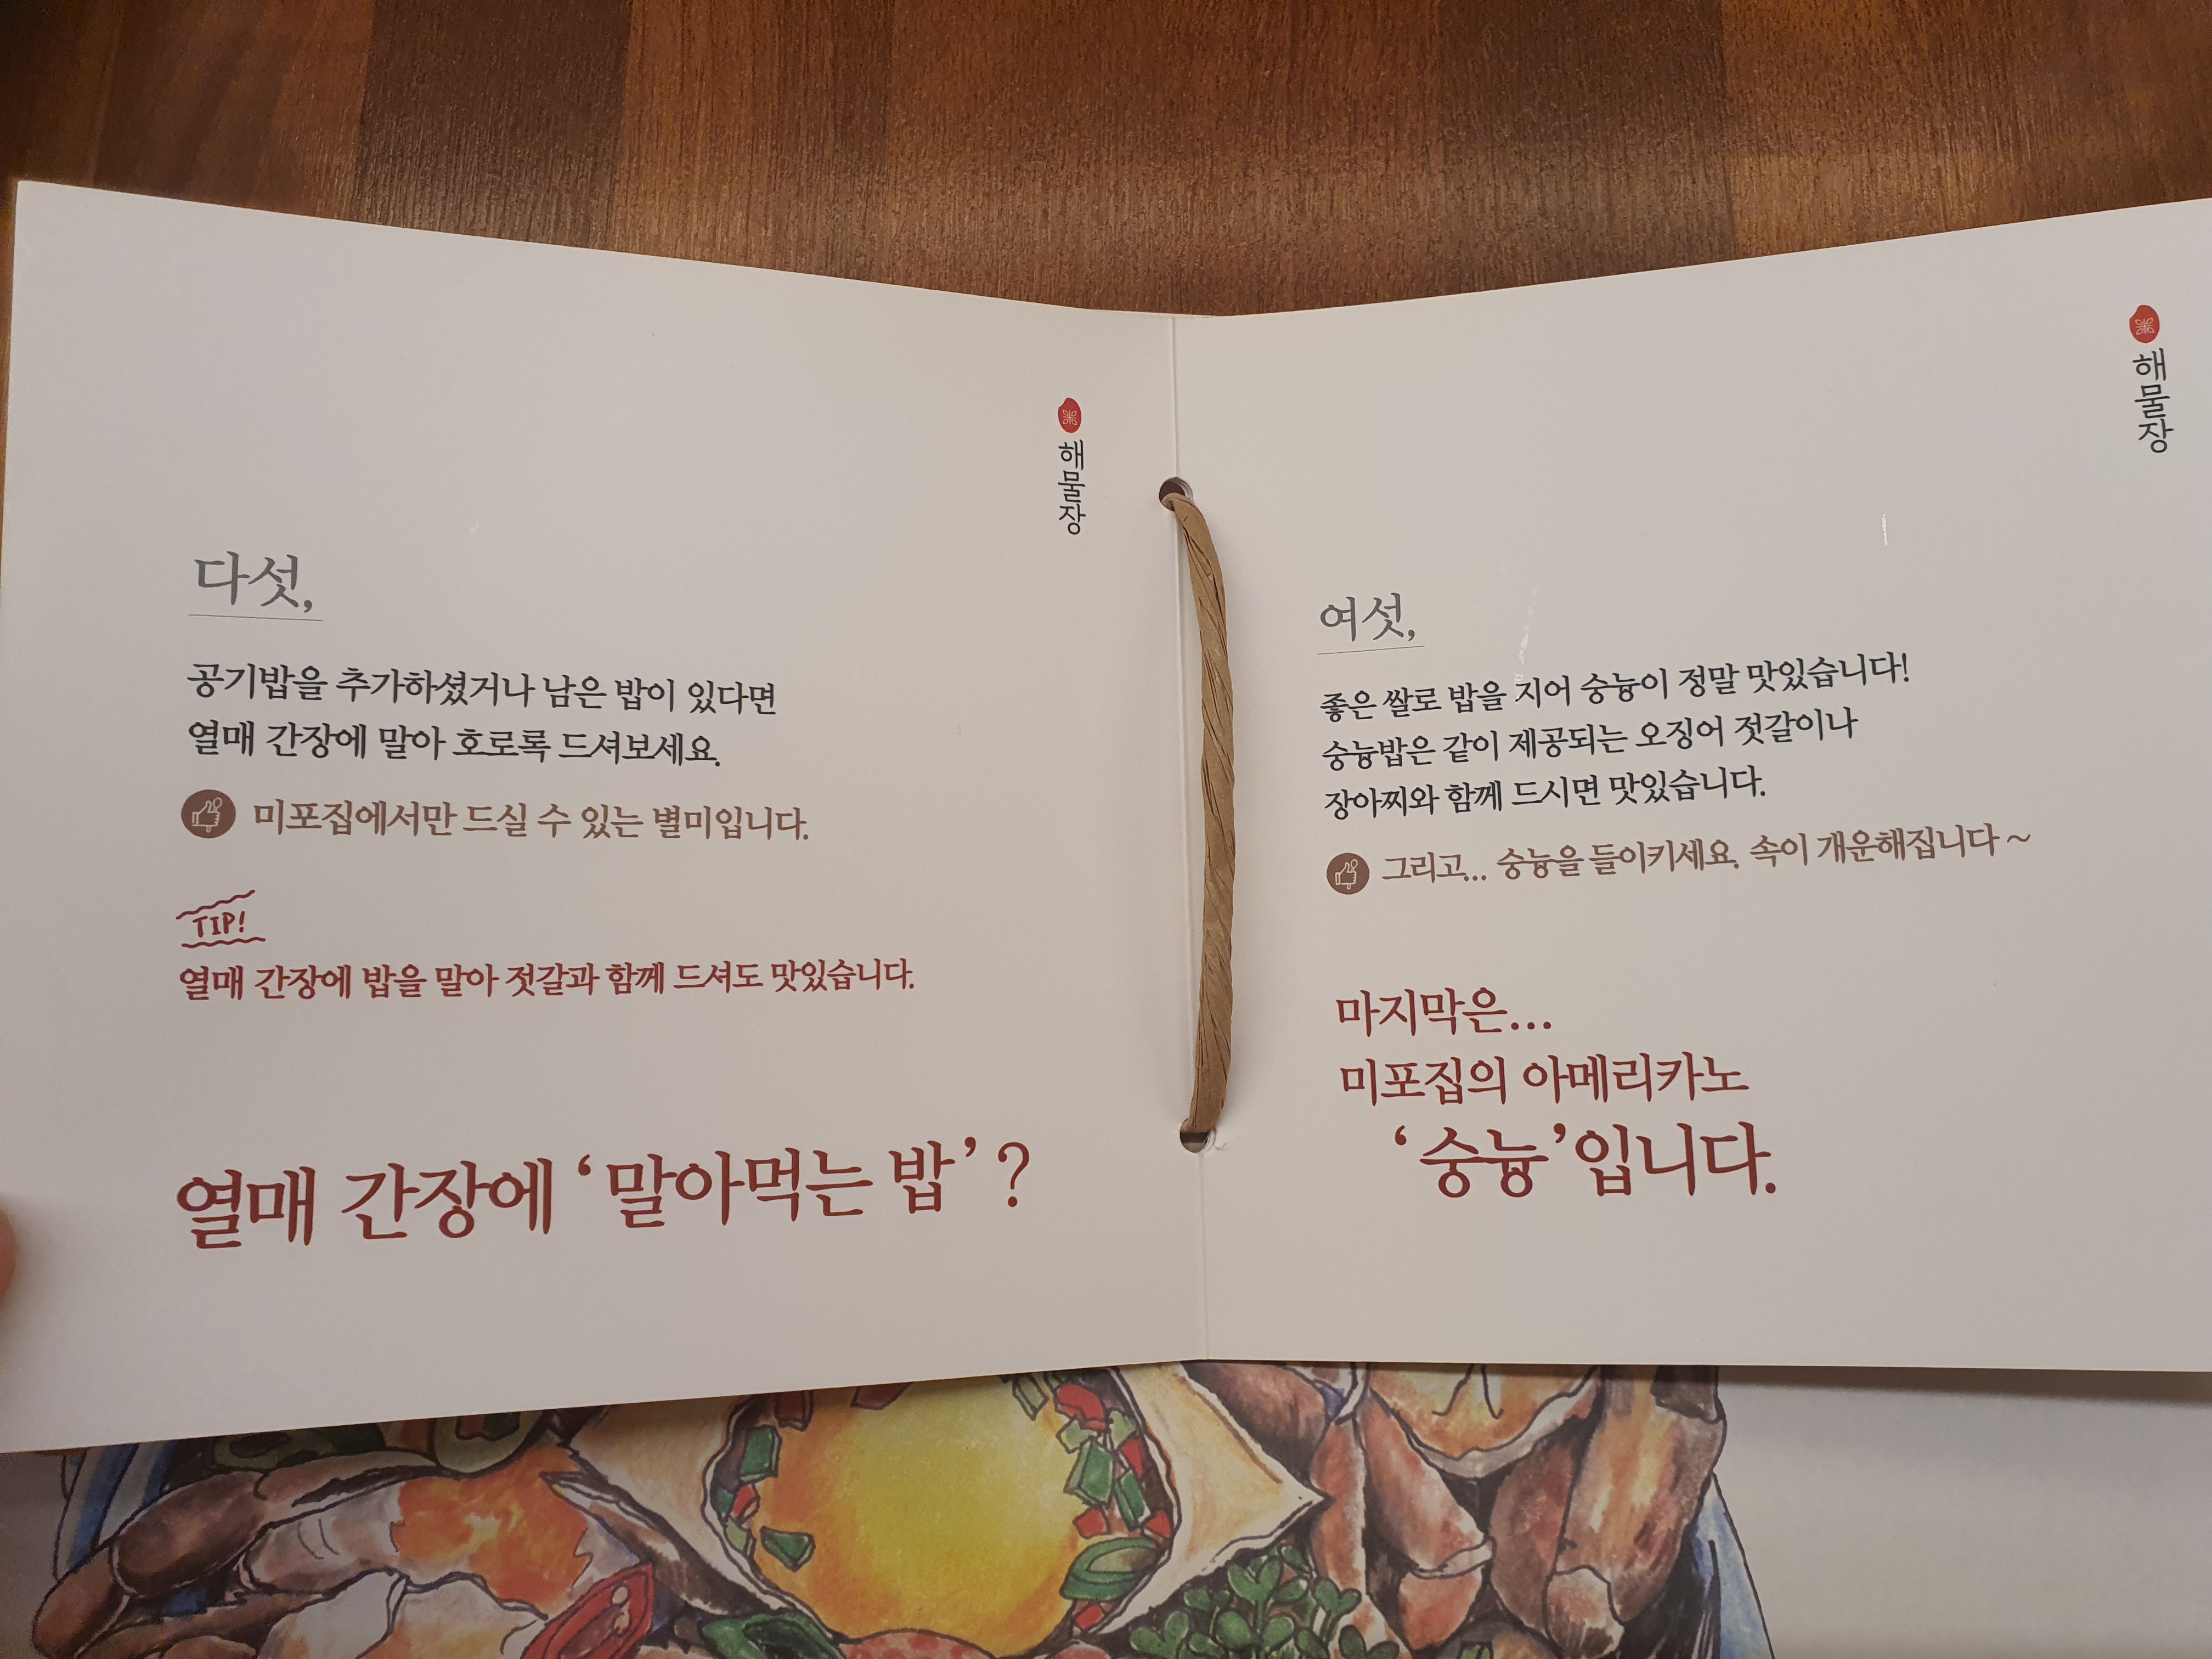 해물장
다섯,
공기밥을 추가하셨거나 남은 밥이 있다면
열매 간장에 말아 호로록 드셔보세요.
미포집에서만 드실 수 있는 별미입니다.
TIP!
열매 간장에 밥을 말아 젓갈과 함께 드셔도 맛있습니다.
열매 간장에 ‘말아먹는 밥’?
해물장
여섯,
좋은 쌀로 밥을 지어 숭늉이 정말 맛있습니다!
숭늉밥은 같이 제공되는 오징어 젓갈이나
장아찌와 함께 드시면 맛있습니다.
그리고... 숭늉을 들이키세요. 속이 개운해집니다~
마지막은...
미포집의 아메리카노
‘숭늉’입니다.